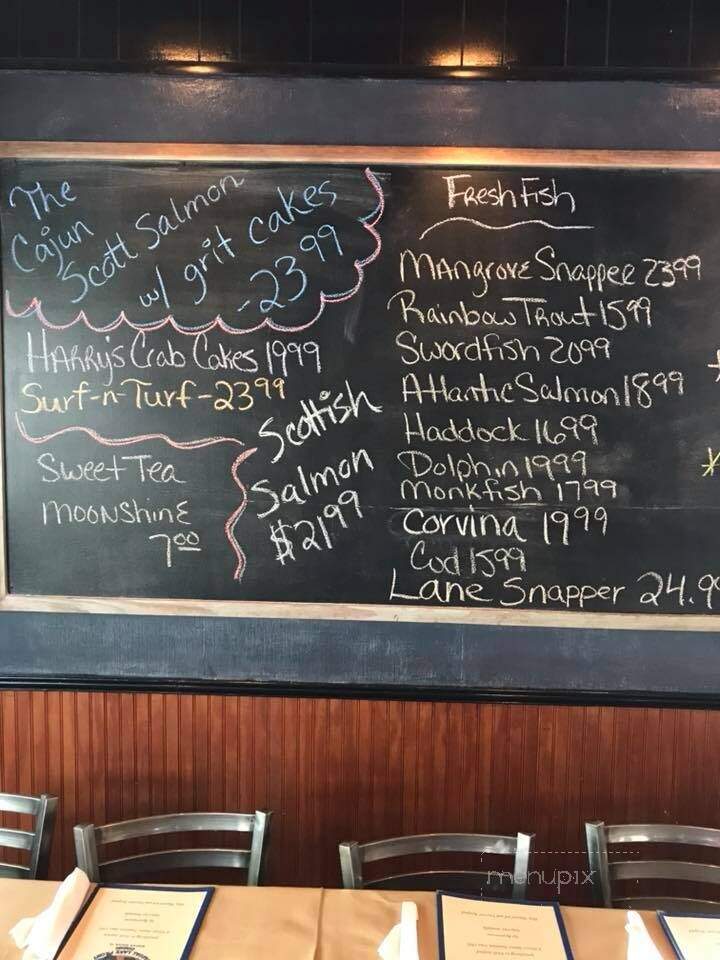 The
Cajun
Scott Salmon
w/ grit cakes
-23 99
HARRy's Crab Cakes 19 99
Surf-n-Turf-23 99
Sweet Tea
MOONSHINE
7 00
Scottish
Salmon
$21 99
Fresh Fish
MANgrove Snapper 23 99
Rainbow Trout 15 99
Swordfish 20 99
Atlantic Salmon 18 99
Haddock 16 99
Dolphin 19 99
Monkfish 17 99
Corvina 19 99
Cod 15 99
Lane Snapper 24.9
menupix